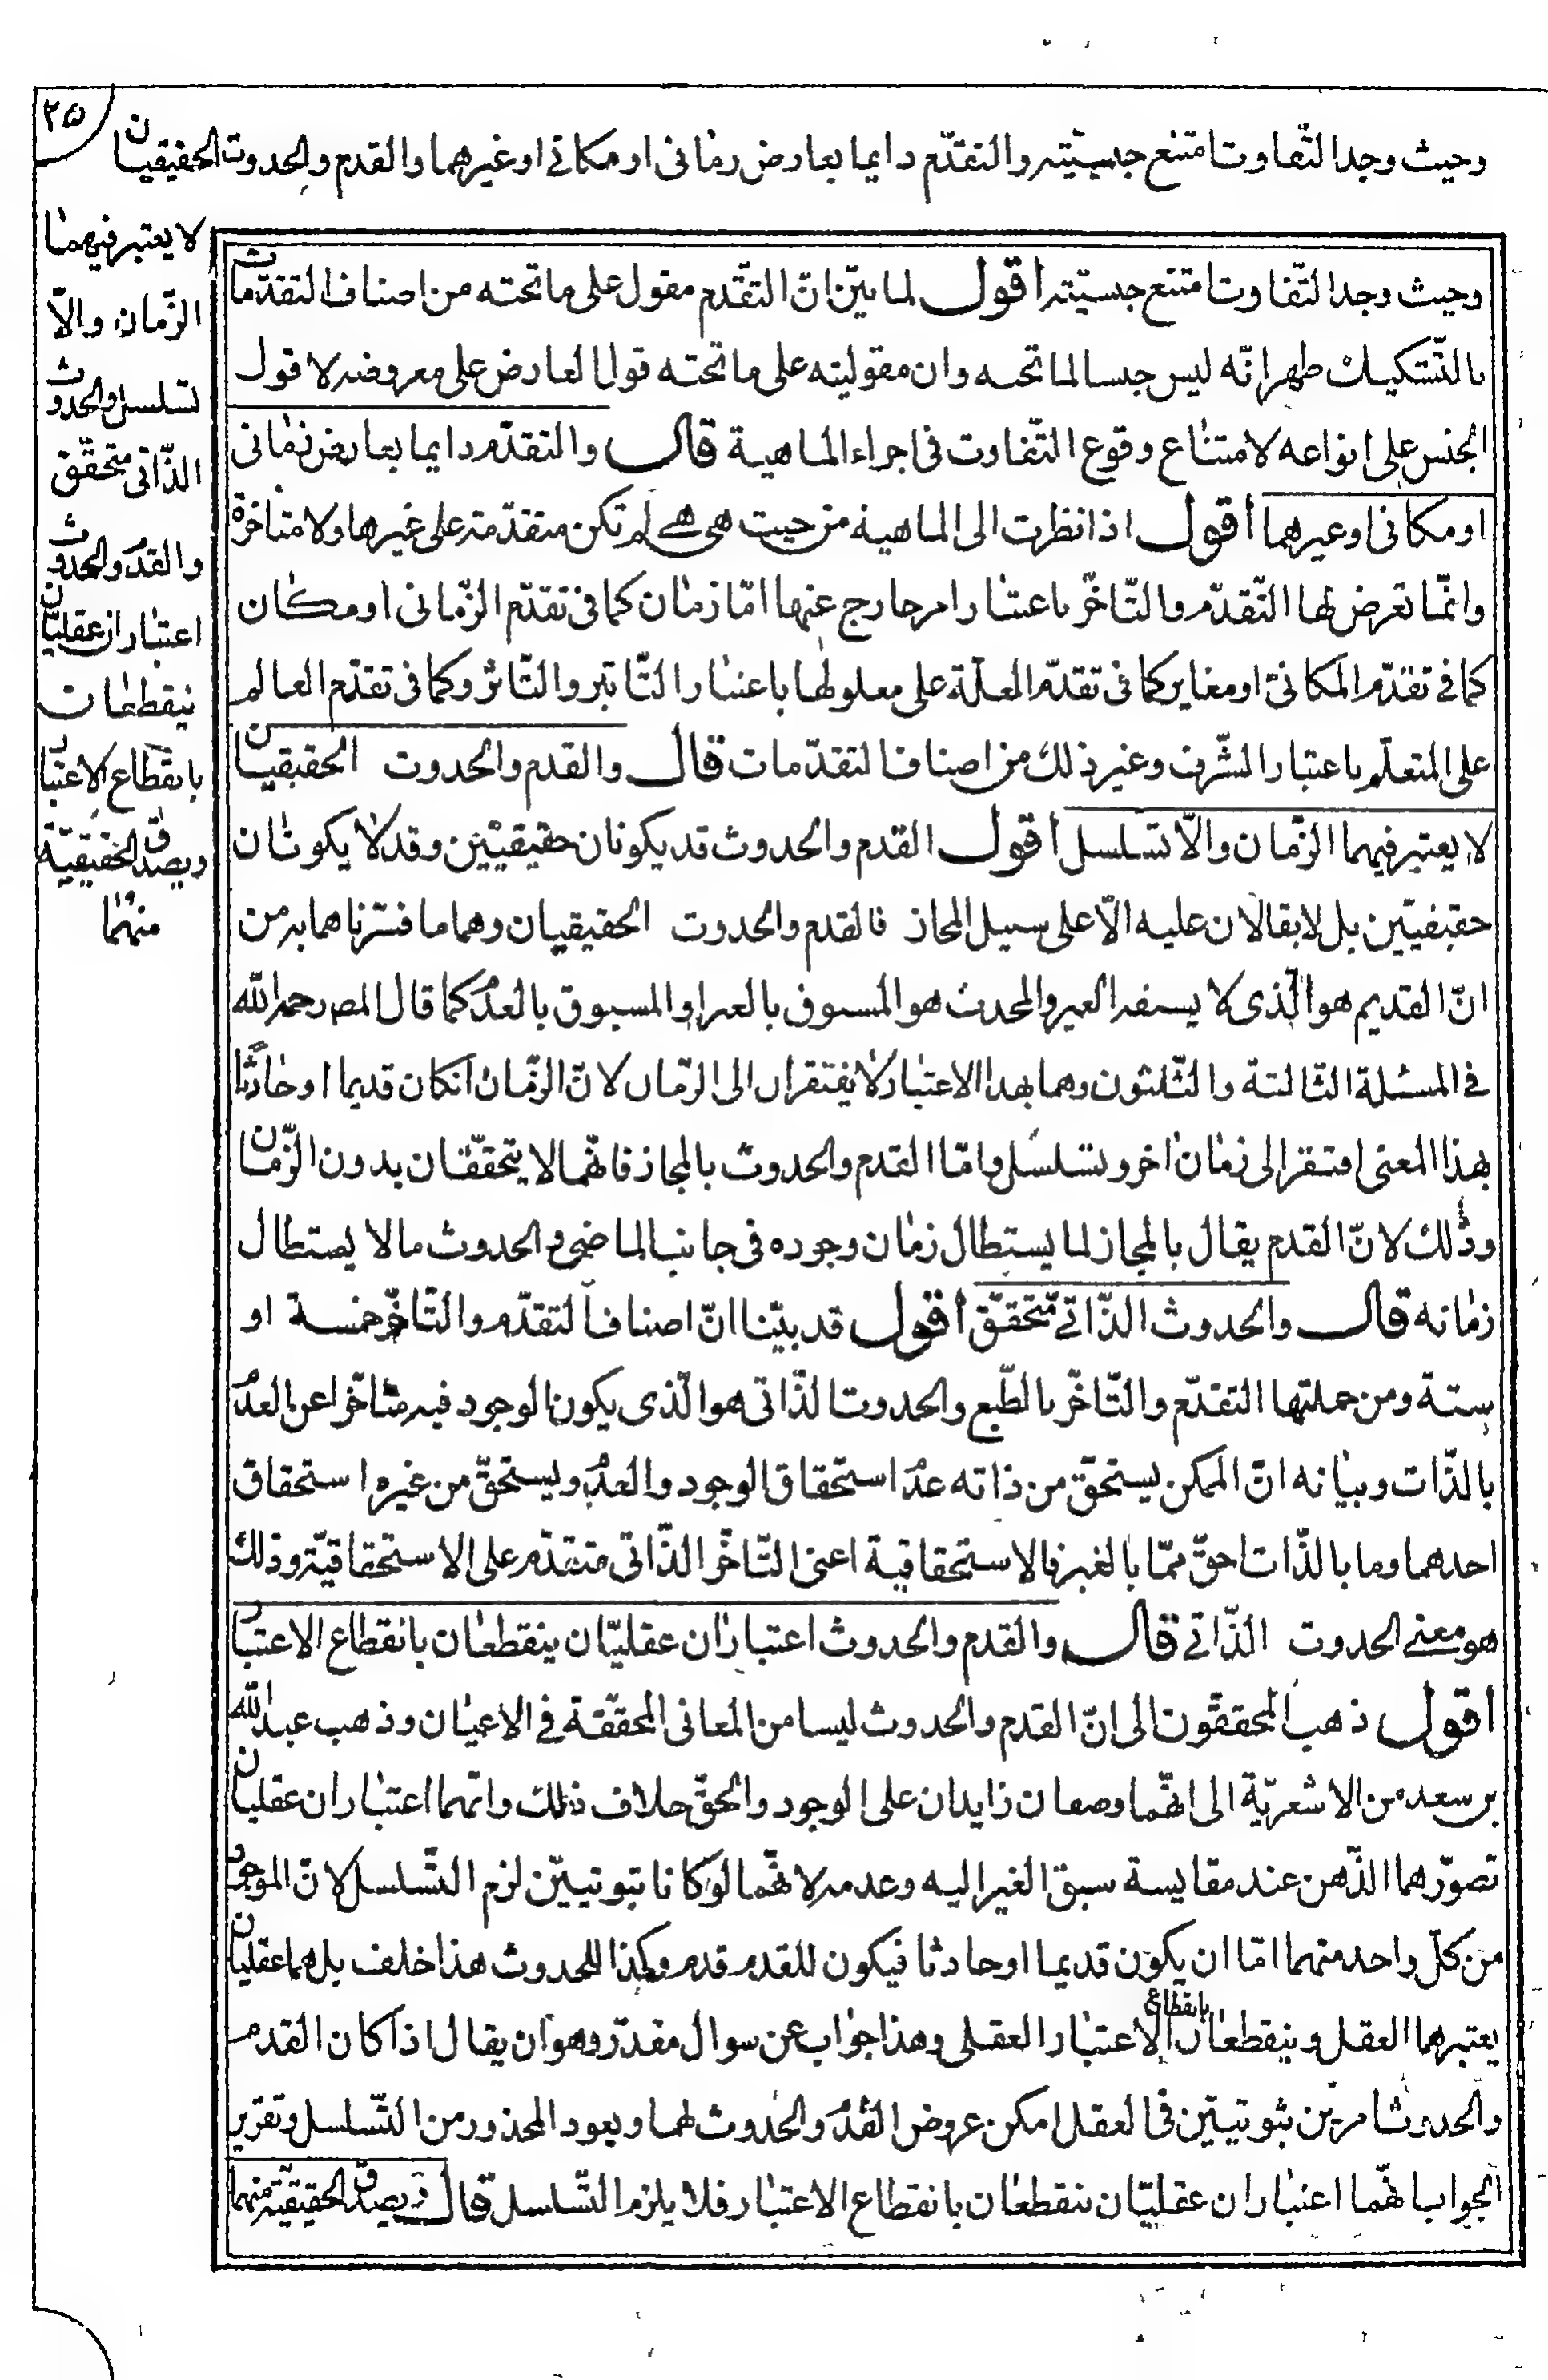 ٢٥
وحيث وجد التّفاوت امتنع جنسيّته والتقدّم دايما بعارض زمانى او مكانى او غيرهما والقدم والحدوث الحقيقيان
لا يعتبر فيهما
الزّمان والّا
تسلسل والحدوث
الذّاتى متحقّق
والقدم والحدوث
اعتباران عقليّان
ينقطعان
بانقطاع الاعتبار
ويصدق الحقيقيّة
منهما
وحيث وجد التّفاوت امتنع جنسيّته أقول لما بيّن انّ التقّدم مقول على ما تحته من اصناف التقدّمات
بالتّشكيك ظهر انّه ليس جنسا لما تحته وان مقوليته على ما تحته قول العارض على معروضه لا قول
الجنس على انواعه لامتناع وقوع التّفاوت فى اجزاء الماهية قال والتقدّم دايما بعارض زمانى
او مكانى او غيرهما أقول اذا نظرت الى الماهية من حيث هى هى لم تكن متقدّمة على غيرها ولا متأخرة
وانّما تعرض لها التّقدّم والتّأخّر باعتبار امر خارج عنها امّا زمان كما فى تقدّم الزّمانى او مكان
كما فى تقدّم المكانىّ او مغاير كما فى تقدّم العلّة على معلولها باعتبار التّأثير والتّاثر وكما فى تقدّم العالم
على المتعلّم باعتبار الشّرف وغير ذلك من اصناف التقدّمات قال والقدم والحدوث الحقيقيان
لا يعتبر فيهما الزّمان والّا تسلسل أقول القدم والحدوث قد يكونان حقيقيّين وقد لا يكونان
حقيقيّين بل لا يقالان عليه الّا على سبيل المجاز فالقدم والحدوث الحقيقيان وهما ما فسّرناهما به من
انّ القديم هو الّذى لا يسبقه الغير والمحدث هو المسبوق بالغير او المسبوق بالعدم كما قال المص رحمه الله
فى المسئلة الثّالثة والثّلثون وهما بهذا الاعتبار لا يفتقران الى الزّمان لانّ الزّمان ان كان قديما او حادثًا
بهذا المعنى افتقر الى زمان اخر وتسلسل وامّا القدم والحدوث بالمجاز فانّهما لا يتحقّقان بدون الزّمان
وذلك لانّ القدم يقال بالمجاز لما يستطال زمان وجوده فى جانب الماضى والحدوث ما لا يستطال
زمانه قال والحدوث الذّاتى متحقّق أقول قد بيّنا انّ اصناف التقدّم والتّأخّر خمسة او
ستة ومن جملتها التقدّم والتّأخّر بالطّبع والحدوث الذّاتى هو الّذى يكون الوجود فيه متأخّرا عن العدم
بالذّات وبيانه انّ الممكن يستحقّ من ذاته عدم استحقاق الوجود والعدم ويستحقّ من غيره استحقاق
احدهما وما بالذّات احقّ ممّا بالغير فالاستحقاقية اعنى التّأخّر الذّاتى متقدّم على الاستحقاقيّة وذلك
هو معنى الحدوث الذّاتى قال والقدم والحدوث اعتباران عقليّان ينقطعان بانقطاع الاعتبار
أقول ذهب المحققّون الى انّ القدم والحدوث ليسا من المعانى المحقّقة فى الاعيان وذهب عبد الله
بن سعد من الاشعريّة الى انّهما وصفان زايدان على الوجود والحقّ خلاف ذلك وانّهما اعتباران عقليان
تصوّرهما الذّهن عند مقايسة سبق الغير اليه وعدمه لانّهما لو كانا ثبوتيّين لزم التّسلسل لانّ الموجود
من كلّ واحد منهما امّا ان يكون قديما او حادثا فيكون للقدم قدم وكذا للحدوث هذا خلف بل هما عقليان
يعتبرهما العقل وينقطعان بانقطاع الاعتبار العقلى وهذا جواب عن سوال مقدّر وهو ان يقال اذا كان القدم
والحدوث امرين ثبوتيّين فى العقل امكن عروض القدم والحدوث لهما ويعود المحذور من التّسلسل وتقرير
الجواب انّهما اعتباران عقليّان ينقطعان بانقطاع الاعتبار فلا يلزم التّسلسل قال ويصدق الحقيقيّة منهما